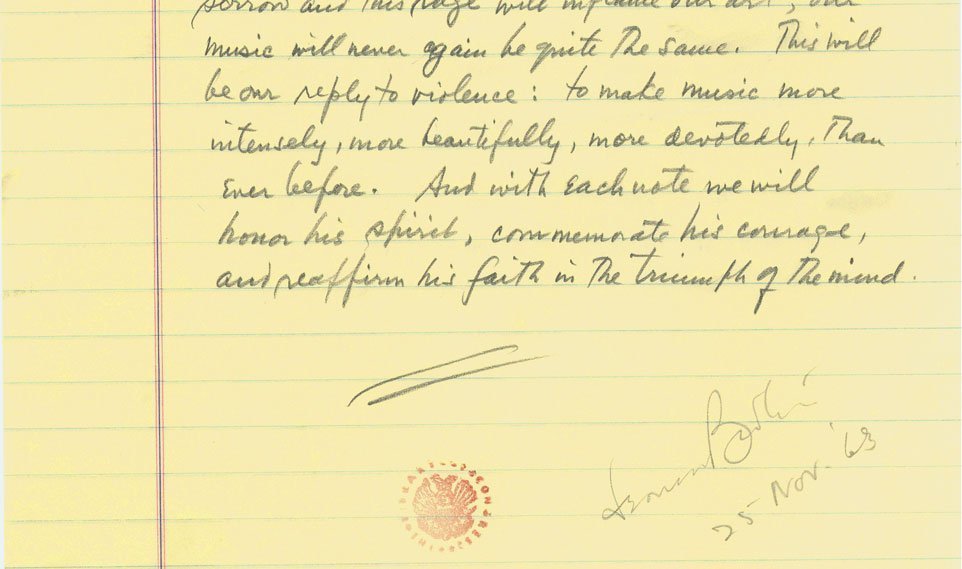 sorrow and this rage will inflame our art; our
music will never again be quite the same. This will
be our reply to violence: to make music more
intensely, more beautifully, more devotedly, than
ever before. And with each note we will
honor his spirit, commemorate his courage,
and reaffirm his faith in the triumph of the mind.
Leonard Bernstein
25 Nov. '63
THE LIBRARY OF CONGRESS